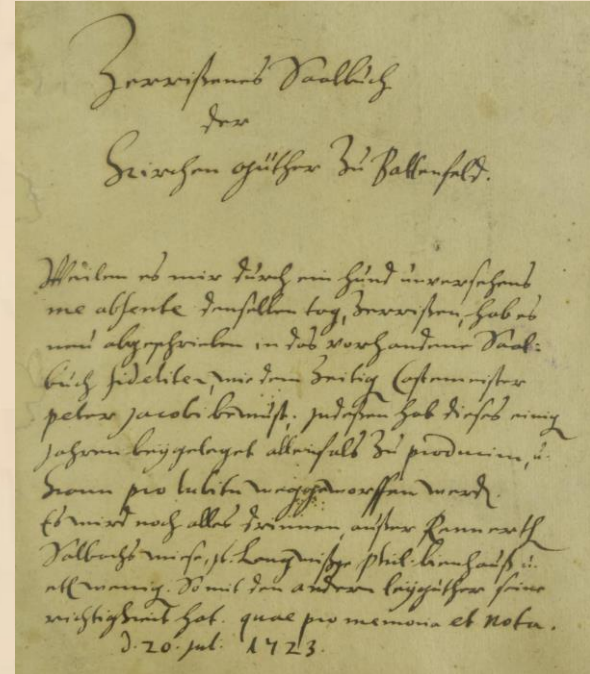 Zerrißenes Saalbuch
der
Kirchen güther Zu Ballenfeld.
Weilen es mir durch ein hund unversehens
me absente denselben tag, zerrißen, hab es
neu abgeschrieben in das vorhandene Saal-
buch fideliter, wie dem Zeitig Castemeister
peter Jacobi bewust. Indeßen hab dieses einig
Jahren beygeleget allenfals zu produciren, u.
kann pro lubitu weggeworffen werd.
Es wird noch alles drinnen, außer
Salbachs wiese, phil. u.
etl. wenig. Somit den andern güther seine
richtigkeit hat. quae pro memoria et nota.
d. 20. Jul. 1723.